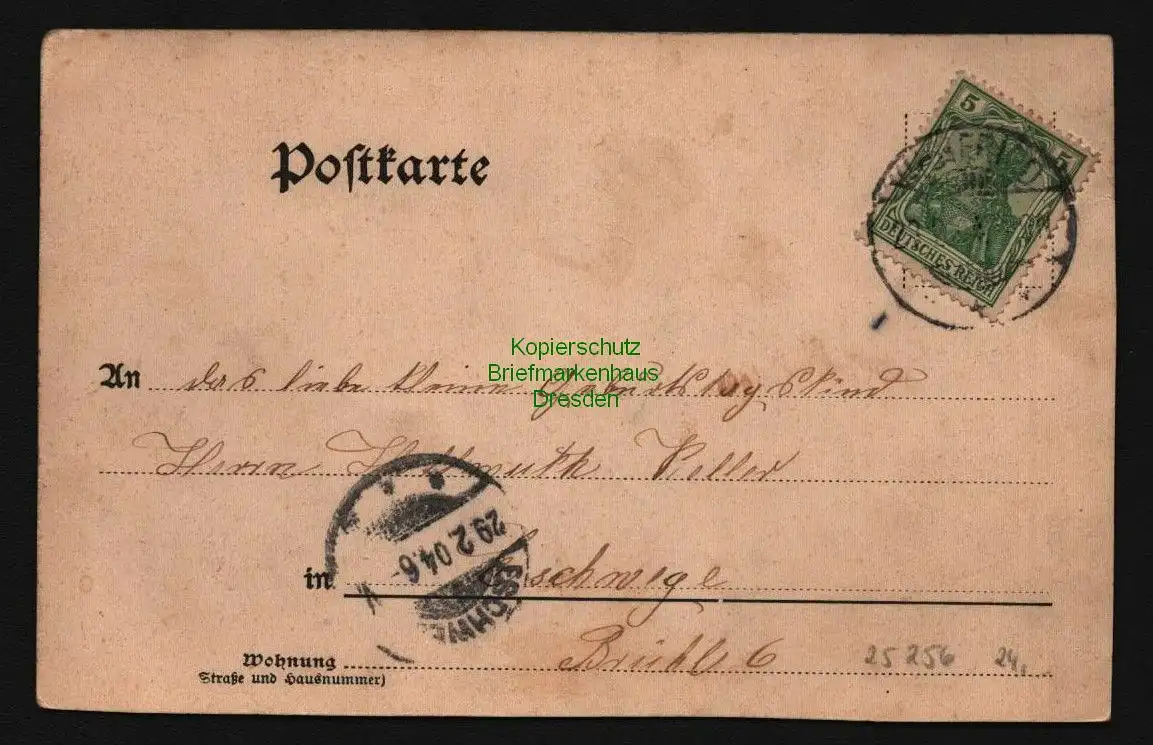 5 5
DEUTSCHES REICH
Postkarte
Kopierschutz
Briefmarkenhaus
Dresden
An das liebe kleine Geburtstagskind
Herrn Hellmuth
in Eschwege
29.2.04.6-
ESCHWE
Wohnung Brühl 6
Straße und Hausnummer)
25256 24.